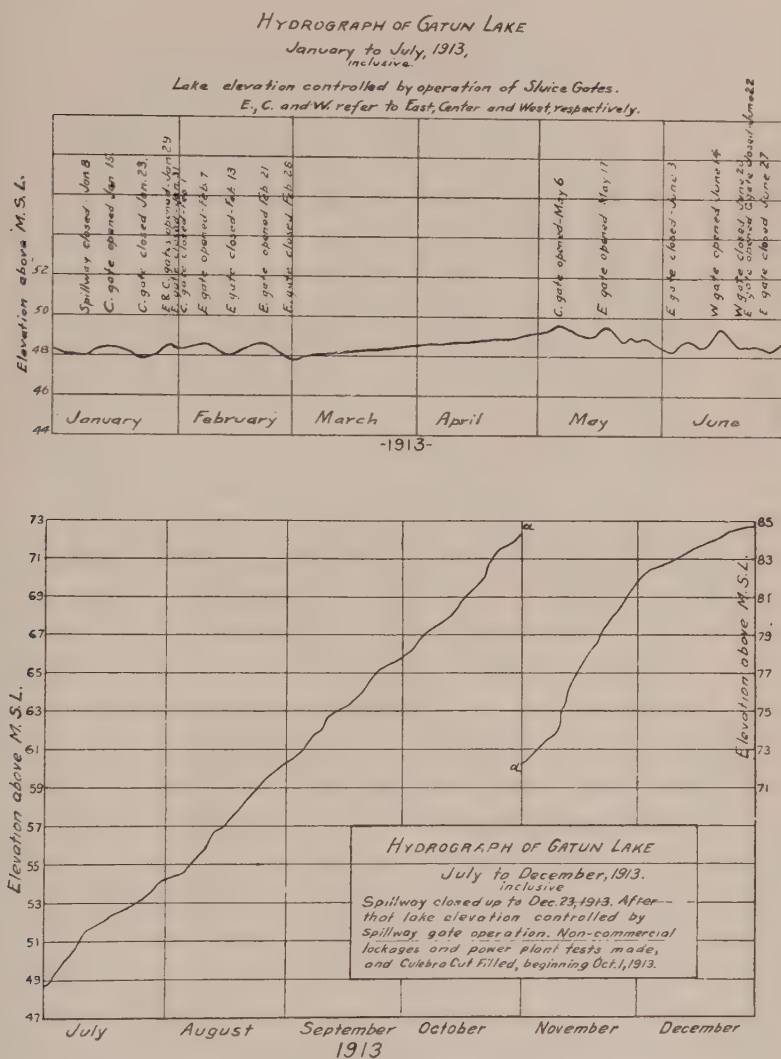 HYDROGRAPH OF GATUN LAKE
January to July, 1913,
inclusive.
Lake elevation controlled by operation of Sluice Gates.
E., C. and W. refer to East, Center and West, respectively.
Elevation above M.S.L.
52
50
48
46
44
Spillway closed - Jan 8
C. gate opened Jan 15
C. gate closed Jan. 23,
E & C. gates opened Jan 29
C. gate closed - Feb 1
E gate opened - Feb. 7
E gate closed - Feb 13
E. gate opened Feb 21
E. gate closed Feb 28
C. gate opened - May 6
E gate opened May 17
E gate closed - June 3
W gate opened June 14
W gate closed June 20
E gate opened C gate closed June 22
E gate closed June 27
January February March April May June
-1913-
73
71
69
67
65
63
61
59
57
55
53
51
49
47
Elevation above M.S.L.
a
a
85
83
81
79
77
75
73
71
Elevation above M.S.L.
HYDROGRAPH OF GATUN LAKE
July to December, 1913.
inclusive
Spillway closed up to Dec. 23, 1913. After
that lake elevation controlled by
Spillway gate operation. Non-commercial
lockages and power plant tests made,
and Culebra Cut Filled, beginning Oct. 1, 1913.
July August September October November December
1913